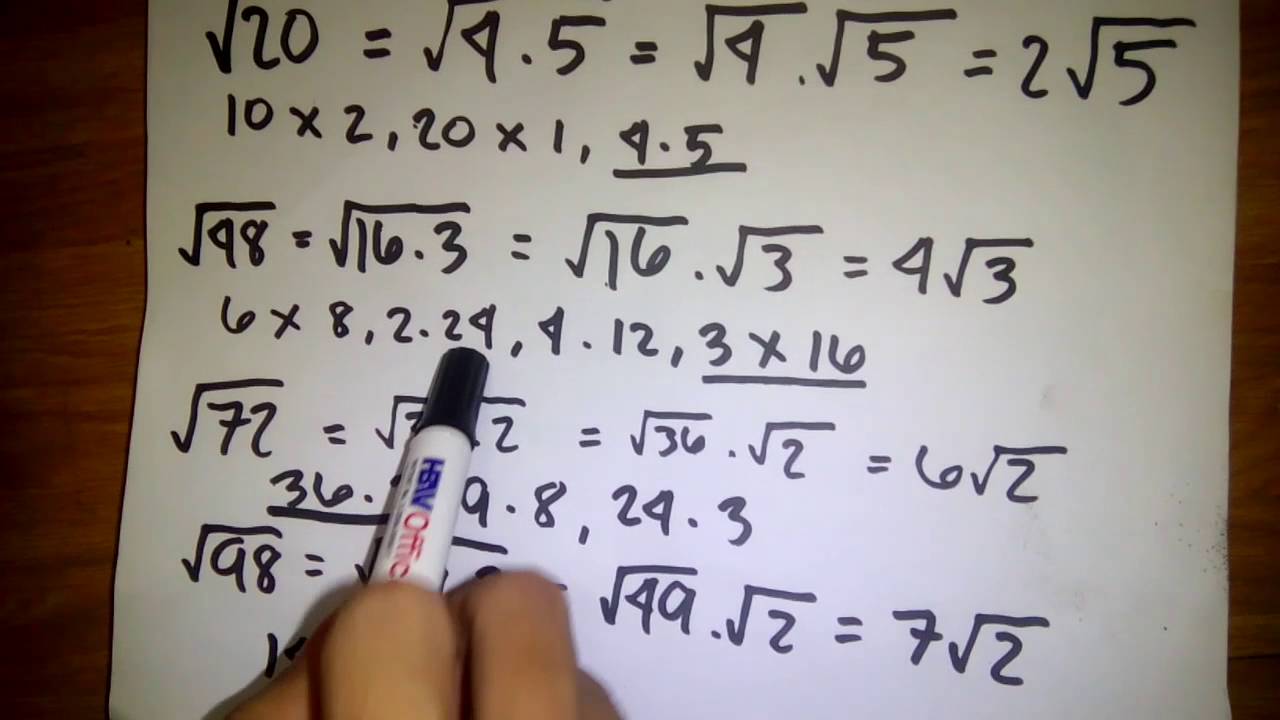 √20 = √4.5 = √4 . √5 = 2√5
10 x 2, 20 x 1, 4.5
√48 = √16.3 = √16 . √3 = 4√3
6 x 8, 2.24, 4.12, 3 x 16
√72 = √ 2 = √36 . √2 = 6√2
36. 9.8, 24.3
√98 = √ = √49 . √2 = 7√2
HBW OFFIC